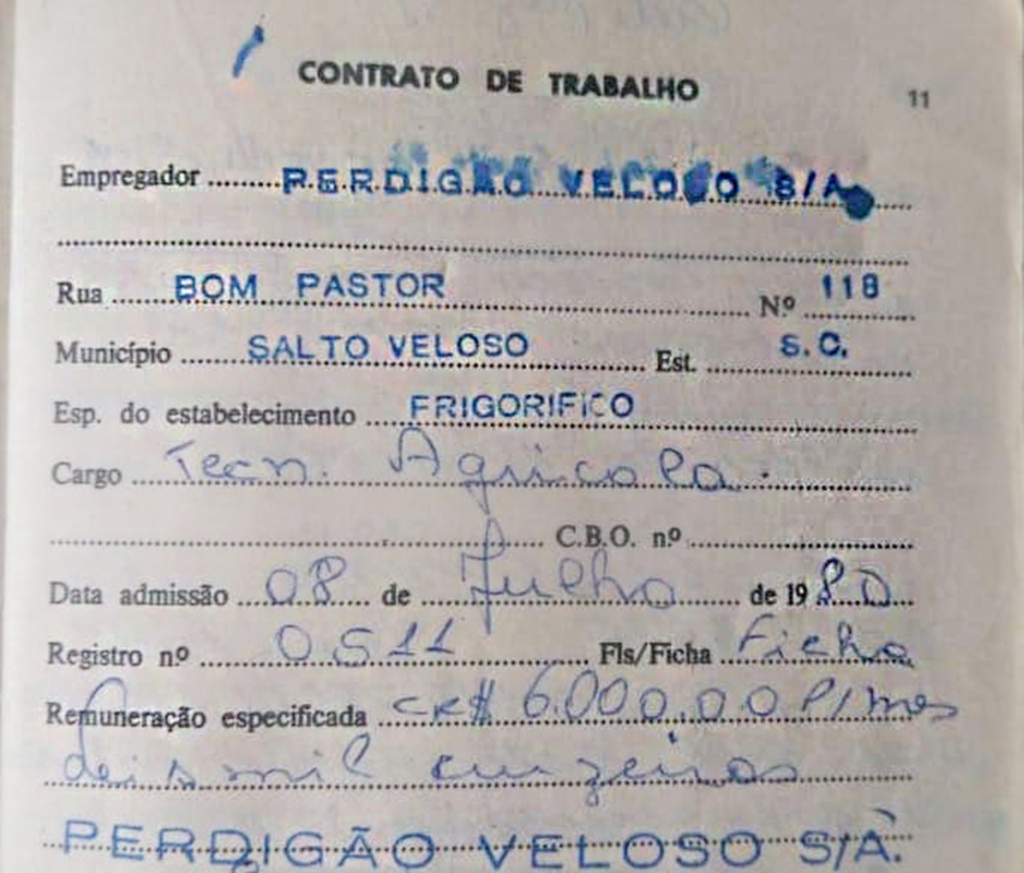 CONTRATO DE TRABALHO 11
Empregador PERDIGÃO VELOSO S/A
Rua BOM PASTOR Nº 118
Município SALTO VELOSO Est. S.C.
Esp. do estabelecimento FRIGORIFICO
Cargo Tecn. Agricola.
C.B.O. nº
Data admissão 08 de Julho de 1980
Registro nº 0511 Fls/Ficha Ficha
Remuneração especificada CR$ 6.000,00 P/mes
(seis mil cruzeiros
PERDIGÃO VELOSO S/A.